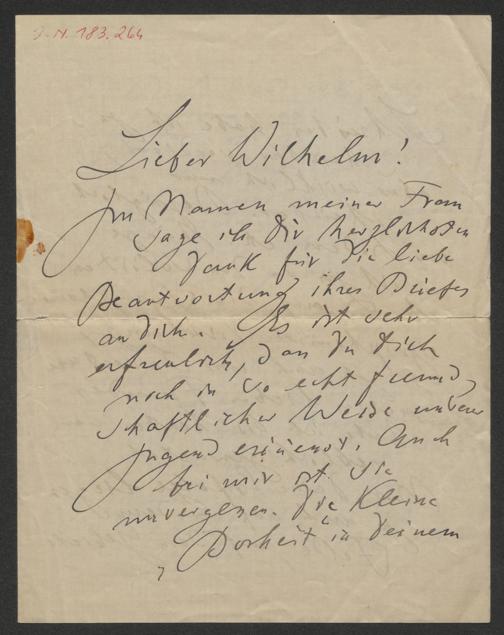 I.N. 183.264
Lieber Wilhelm!
Im Namen meiner Frau
sage ich Dir herzlichsten
Dank für die liebe
Beantwortung ihres Briefes
an dich. Es ist sehr
erfreulich, daß Du Dich
noch in so echt freund,
schaftlicher Weise unserer
Jugend erinnerst. Auch
bei mir ist sie
unvergessen. Die Kleine
„Bosheit“ in Deinem